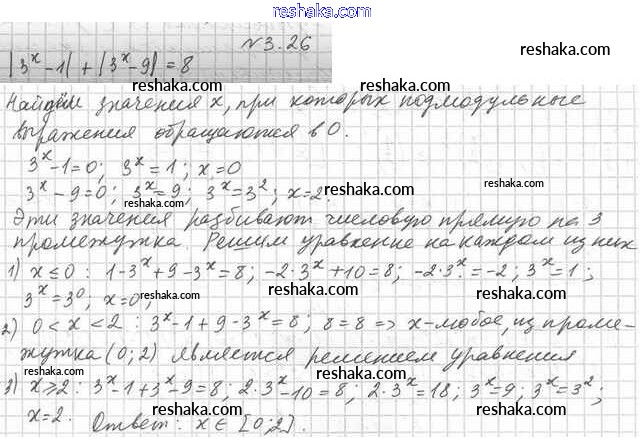 reshaka.com
№3.26
reshaka.com
|3ˣ-1| + |3ˣ-9| = 8 reshaka.com
reshaka.com
Найдём значения x, при которых подмодульные
reshaka.com
выражения обращаются в 0.
3ˣ-1=0; 3ˣ=1; x=0 reshaka.com
3ˣ-9=0; 3ˣ=9; 3ˣ=3²; x=2. reshaka.com
reshaka.com
Эти значения разбивают числовую прямую на 3
промежутка. Решим уравнение на каждом из них
reshaka.com reshaka.com
1) x≤0: 1-3ˣ+9-3ˣ=8; -2·3ˣ+10=8; -2·3ˣ=-2; 3ˣ=1;
3ˣ=3⁰; x=0; reshaka.com reshaka.com reshaka.com
2) 0<x<2: 3ˣ-1+9-3ˣ=8; 8=8 => x-любое, из проме-
reshaka.com
жутка (0;2) является решением уравнения
3) x≥2: 3ˣ-1+3ˣ-9=8; 2·3ˣ-10=8; 2·3ˣ=18; 3ˣ=9; 3ˣ=3²;
reshaka.com reshaka.com
x=2. Ответ: x∈[0;2]. reshaka.com
reshaka.com